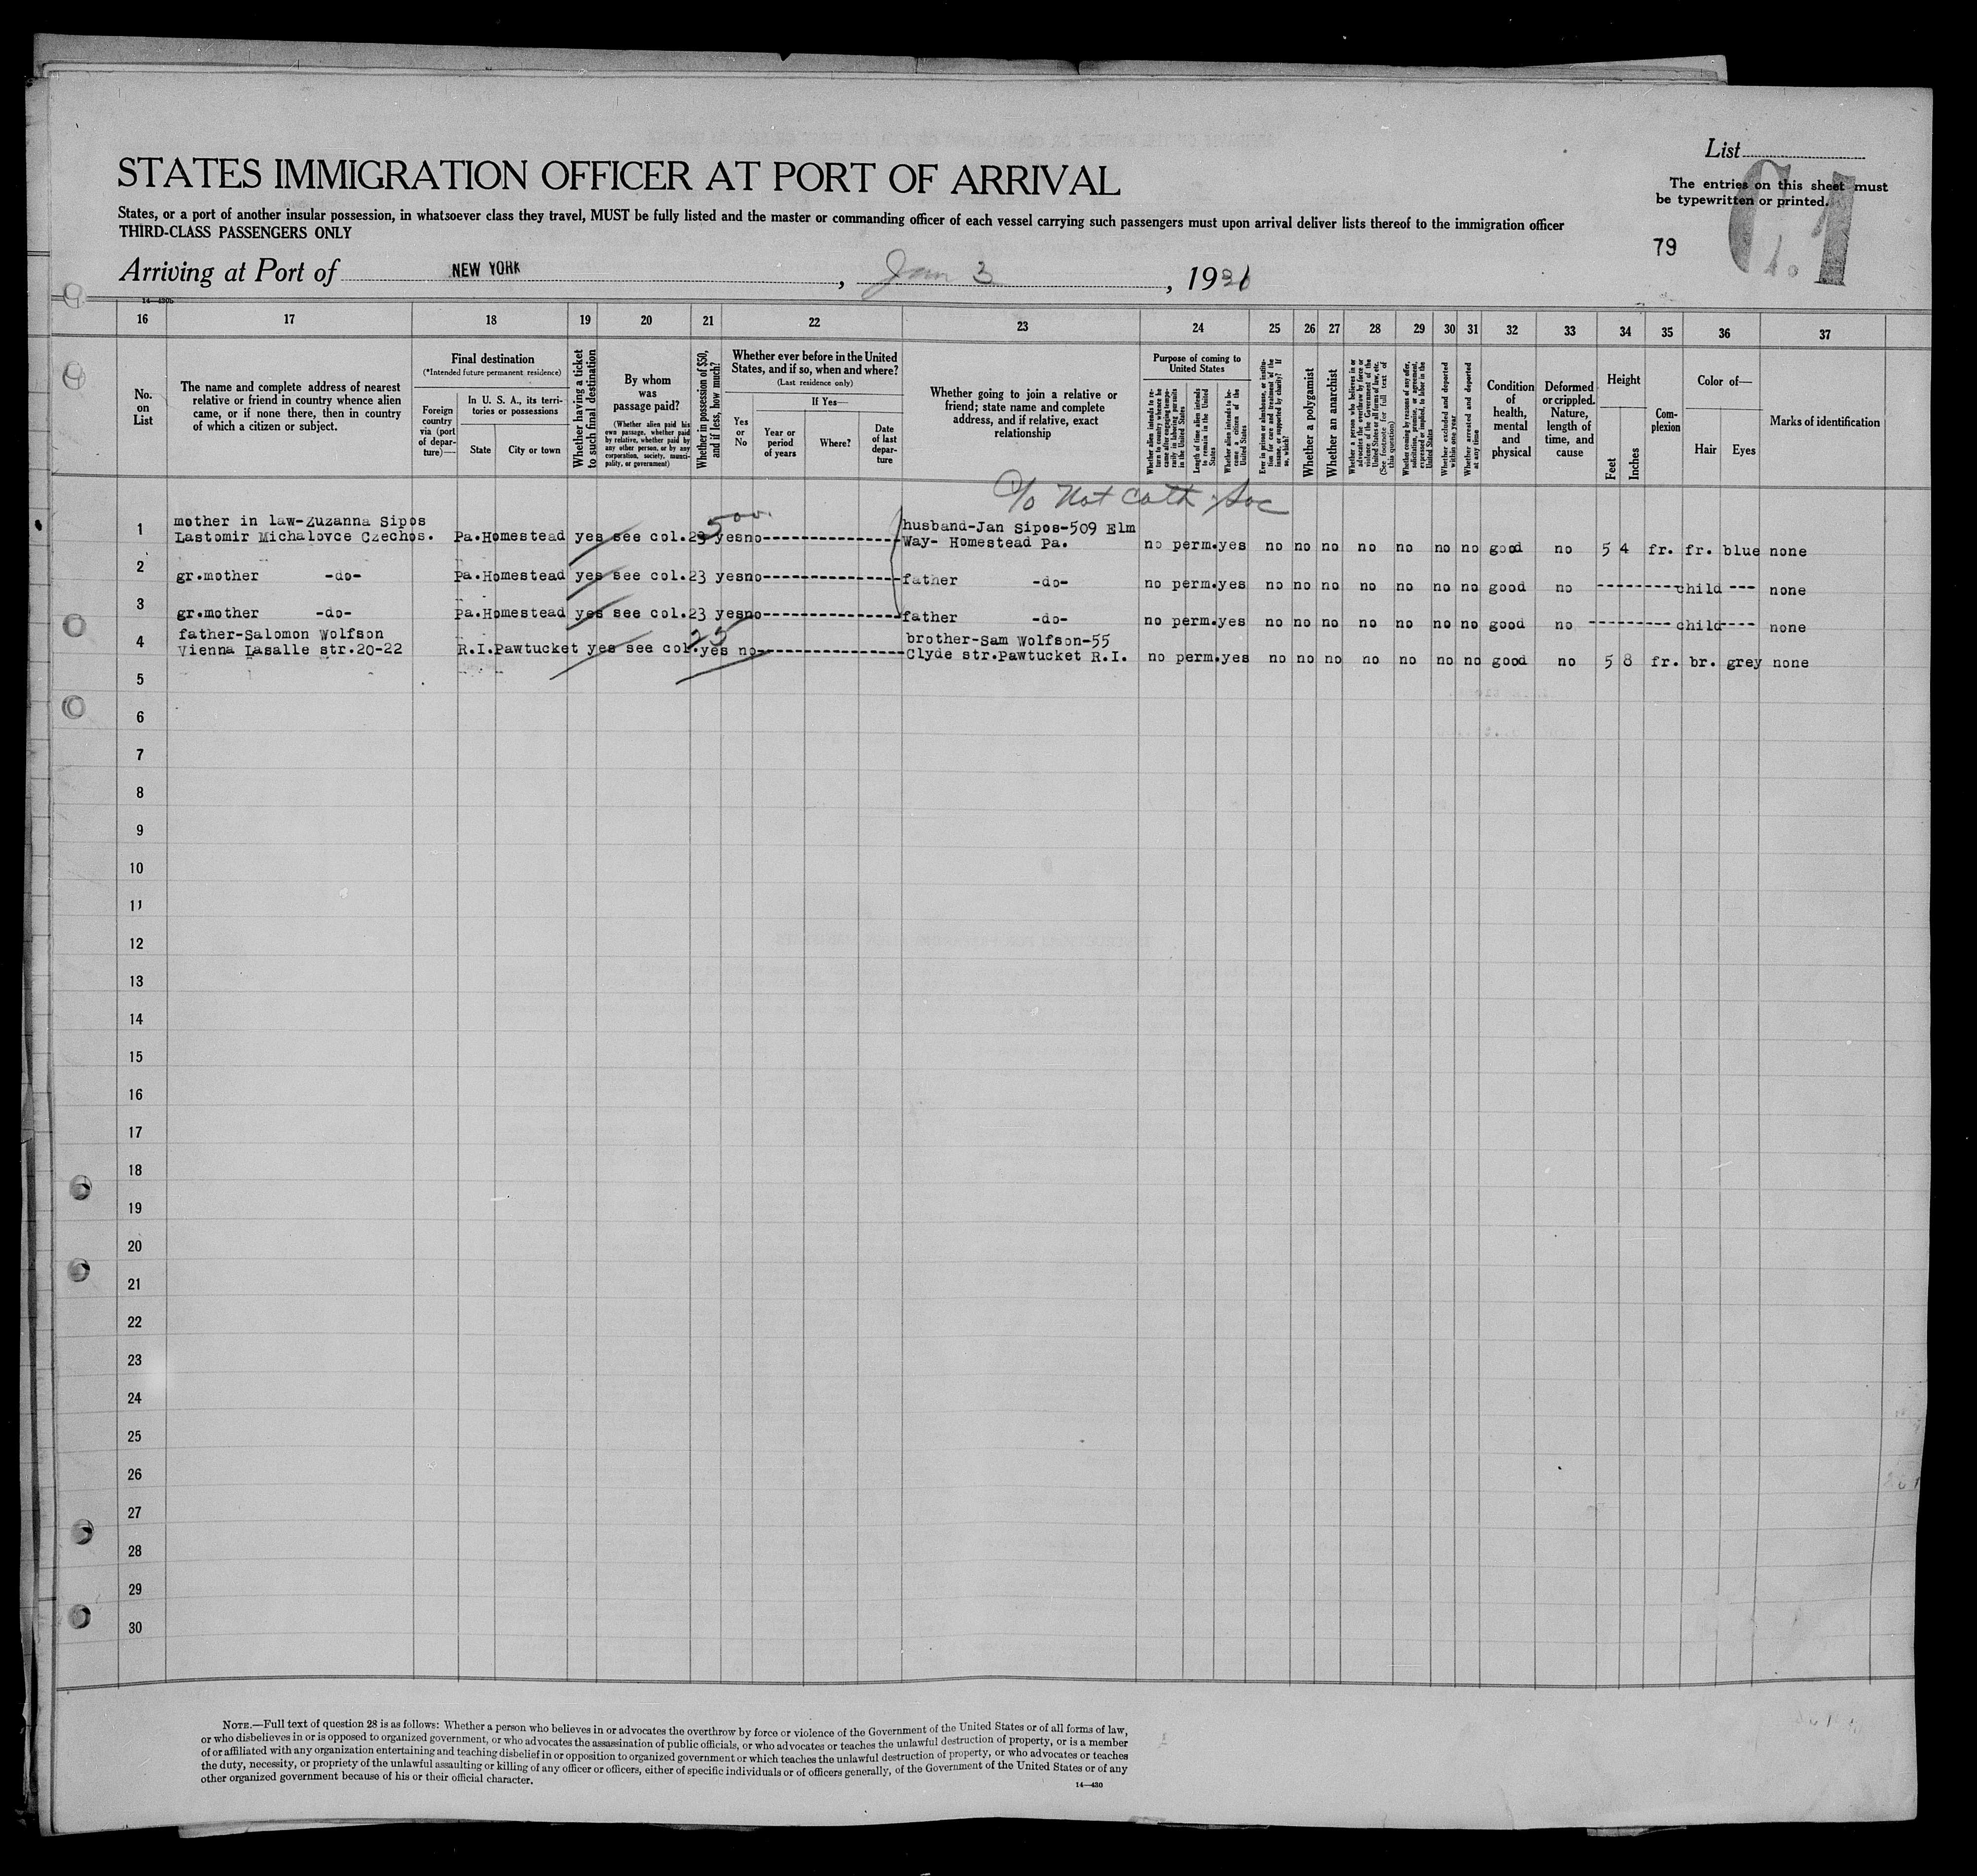 List
The entries on this sheet must
be typewritten or printed.
C.1
79
STATES IMMIGRATION OFFICER AT PORT OF ARRIVAL
States, or a port of another insular possession, in whatsoever class they travel, MUST be fully listed and the master or commanding officer of each vessel carrying such passengers must upon arrival deliver lists thereof to the immigration officer
THIRD-CLASS PASSENGERS ONLY
Arriving at Port of NEW YORK, Jan 3, 19
14—430b
16 17 18 19 20 21 22 23 24 25 26 27 28 29 30 31 32 33 34 35 36 37
No.
on
List
The name and complete address of nearest
relative or friend in country whence alien
came, or if none there, then in country
of which a citizen or subject.
Final destination
(*Intended future permanent residence)
Foreign
country
via (port
of depar-
ture)—
In U. S. A., its terri-
tories or possessions
State
City or town
Whether having a ticket
to such final destination
By whom
was
passage paid?
(Whether alien paid his
own passage, whether paid
by relative, whether paid by
any other person, or by any
corporation, society, munici-
pality, or government)
Whether in possession of $50,
and if less, how much?
Whether ever before in the United
States, and if so, when and where?
(Last residence only)
Yes
or
No
If Yes—
Year or
period
of years
Where?
Date
of last
depar-
ture
Whether going to join a relative or
friend; state name and complete
address, and if relative, exact
relationship
Purpose of coming to
United States
Whether alien intends to re-
turn to country whence he
came after engaging tempo-
rarily in laboring pursuits
in the United States
Length of time alien intends
to remain in the United
States
Whether alien intends to be-
come a citizen of the
United States
Ever in prison or almshouse, or institu-
tion for care and treatment of the
insane, or supported by charity? If
so, which?
Whether a polygamist
Whether an anarchist
Whether a person who believes in or
advocates the overthrow by force or
violence of the Government of the
United States or all forms of law, etc.
(See footnote for full text of
this question)
Whether coming by reasons of any offer,
solicitation, promise, or agreement,
expressed or implied, to labor in the
United States
Whether excluded and deported
within one year
Whether arrested and deported
at any time
Condition
of
health,
mental
and
physical
Deformed
or crippled.
Nature,
length of
time, and
cause
Height
Feet
Inches
Com-
plexion
Color of—
Hair
Eyes
Marks of identification
C/o Nat Cath Soc
500.
mother in law-Zuzanna Sipos husband-Jan Sipos-509 Elm
1 Lastomir Michalovce Czechos. Pa.Homestead yes see col.23 yesno-------------- Way- Homestead Pa. no perm.yes no no no no no no no good no 5 4 fr. fr. blue none
2 gr.mother -do- Pa.Homestead yes see col.23 yesno-------------- father -do- no perm.yes no no no no no no no good no --------child --- none
3 gr.mother -do- Pa.Homestead yes see col.23 yesno-------------- father -do- no perm.yes no no no no no no no good no --------child---- none
25
father-Salomon Wolfson brother-Sam Wolfson-55
4 Vienna Lasalle str.20-22 R.I.Pawtucket yes see col.yes no-------------- Clyde str.Pawtucket R.I. no perm.yes no no no no no no no good no 5 8 fr. br. grey none
5
6
7
8
9
10
11
12
13
14
15
16
17
18
19
20
21
22
23
24
25
26
27
28
29
30
NOTE.—Full text of question 28 is as follows: Whether a person who believes in or advocates the overthrow by force or violence of the Government of the United States or of all forms of law,
or who disbelieves in or is opposed to organized government, or who advocates the assassination of public officials, or who advocates or teaches the unlawful destruction of property, or is a member
of or affiliated with any organization entertaining and teaching disbelief in or opposition to organized government or which teaches the unlawful destruction of property, or who advocates or teaches
the duty, necessity, or propriety of the unlawful assaulting or killing of any officer or officers, either of specific individuals or of officers generally, of the Government of the United States or of any
other organized government because of his or their official character.
14—430